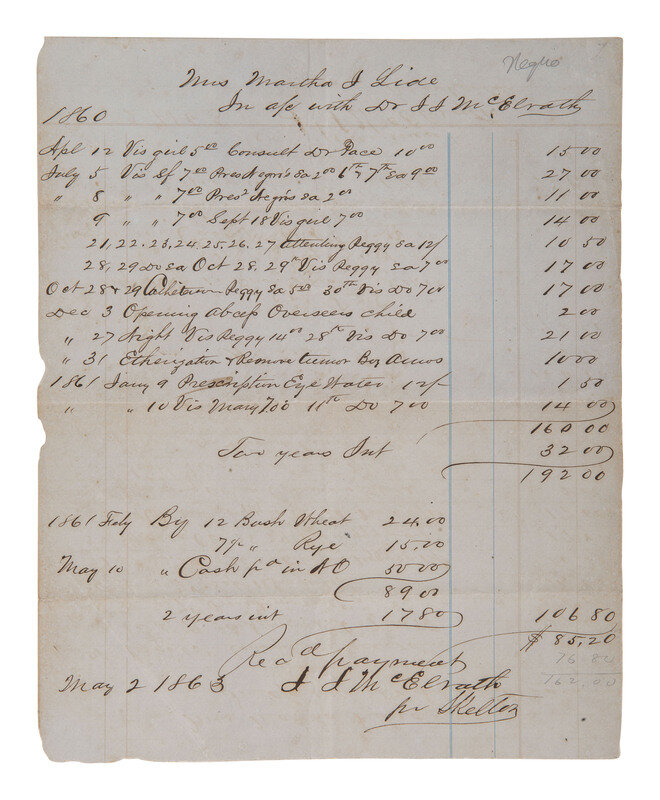 Negro
Mrs Martha J Lide
In a/c with Dr J J McElrath
1860
Apl 12 Vis girl 5.00 Consult Dr Pace 10.00 15 00
July 5 Vis Sf 7.00 Pres Negros Ea 2.00 6th & 7th Ea 9.00 27 00
" 8 " " 7.00 Presd Negros Ea 2.00 11 00
9 " " 7.00 Sept 18 Vis girl 7.00 14 00
21, 22, 23, 24, 25, 26, 27 attending Peggy Ea 12/ 10 50
28, 29 Do Ea Oct 28, 29th Vis Peggy Ea 7.00 17 00
Oct 28 & 29 Peggy Ea 5.00 30th Vis Do 7.00 17 00
Dec 3 Opening abcess Overseers child 2 00
" 27 Night Vis Peggy 14.00 28th Vis Do 7.00 21 00
" 31 Etherization & Remove tumor Boy Amos 10 00
1861 Jany 9 Prescription Eye Water 12/ 1 50
" " 10 Vis Mary 7.00 11th Do 7.00 14 00
160 00
Two years Int 32 00
192 00
1861 Feby By 12 Bush Wheat 24.00
7½ " Rye 15.00
May 10 " Cash pd in NO 50 00
89 00
2 years int 17 80 106 80
$ 85,20
76 80
762.00
Recd payment
May 2 1863 J J McElrath
pr Skelton